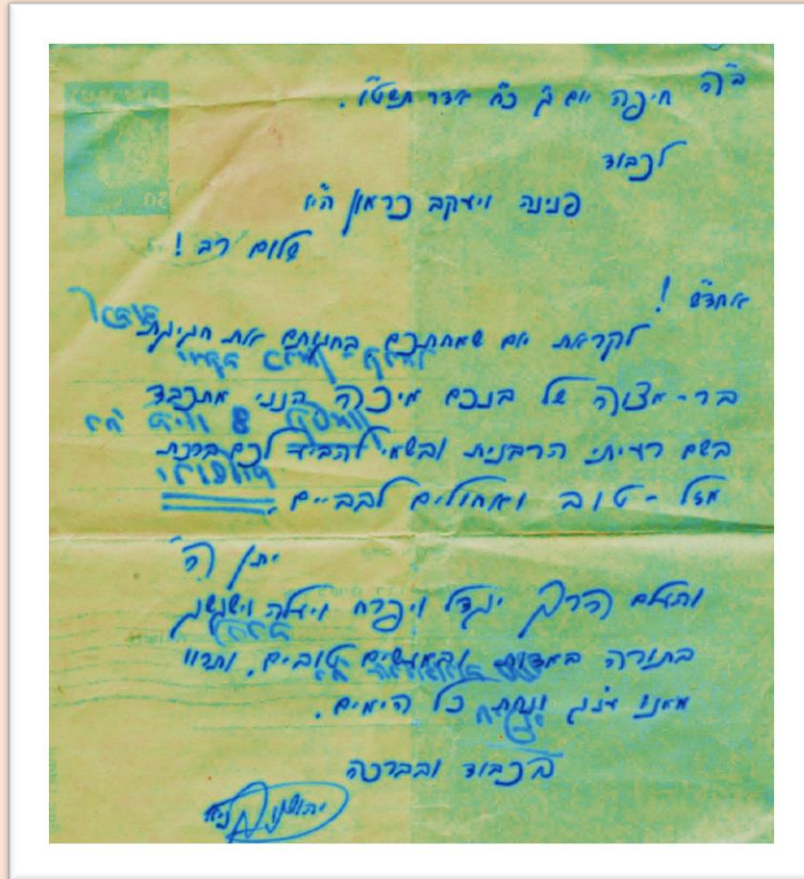 ב"ה חיפה יום ג' כ"ח אדר תשט"ו.
לכבוד
פנינה ויעקב כרמון הי"ו
שלום רב!
אחדש"ה!
לקראת יום שמחתכם בחגגכם את חגיגת
בר-מצוה של בנכם מיכה הנני מתכבד
בשם רעיתי הרבנית ובשמי להביע לכם ברכת
מזל-טוב ואחולים לבביים.
יתן ה'
והעלם הרך יגדל ויפרח ויעלה וישגשג
בתורה במצות ובמעשים טובים. ותרוו
ממנו ענג ונחת כל הימים.
בכבוד ובברכה
50